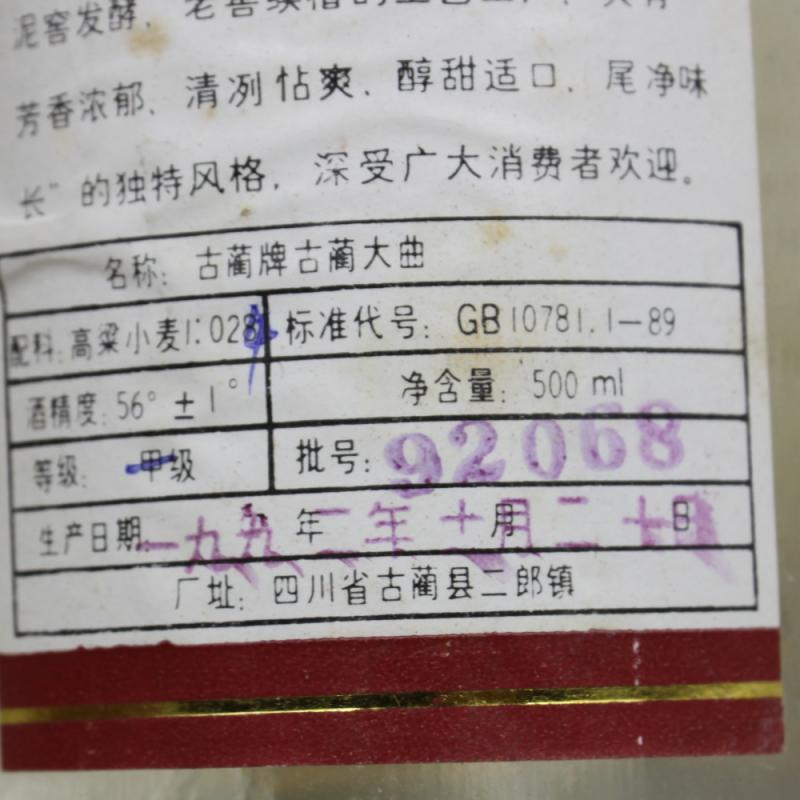 泥窖发酵、老窖续糟的
芳香浓郁、清冽怗爽、醇甜适口、尾净味
长"的独特风格，深受广大消费者欢迎。
名称：古蔺牌古蔺大曲
配料：高粱小麦1:028 标准代号：GB10781.1—89
酒精度：56°±1° 净含量：500ml
等级：甲级 批号：92068
生产日期 一九九二年十月二十日
年 月 日
厂址：四川省古蔺县二郎镇